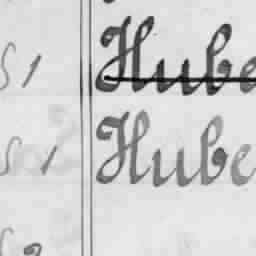 51 Hube
51 Hube